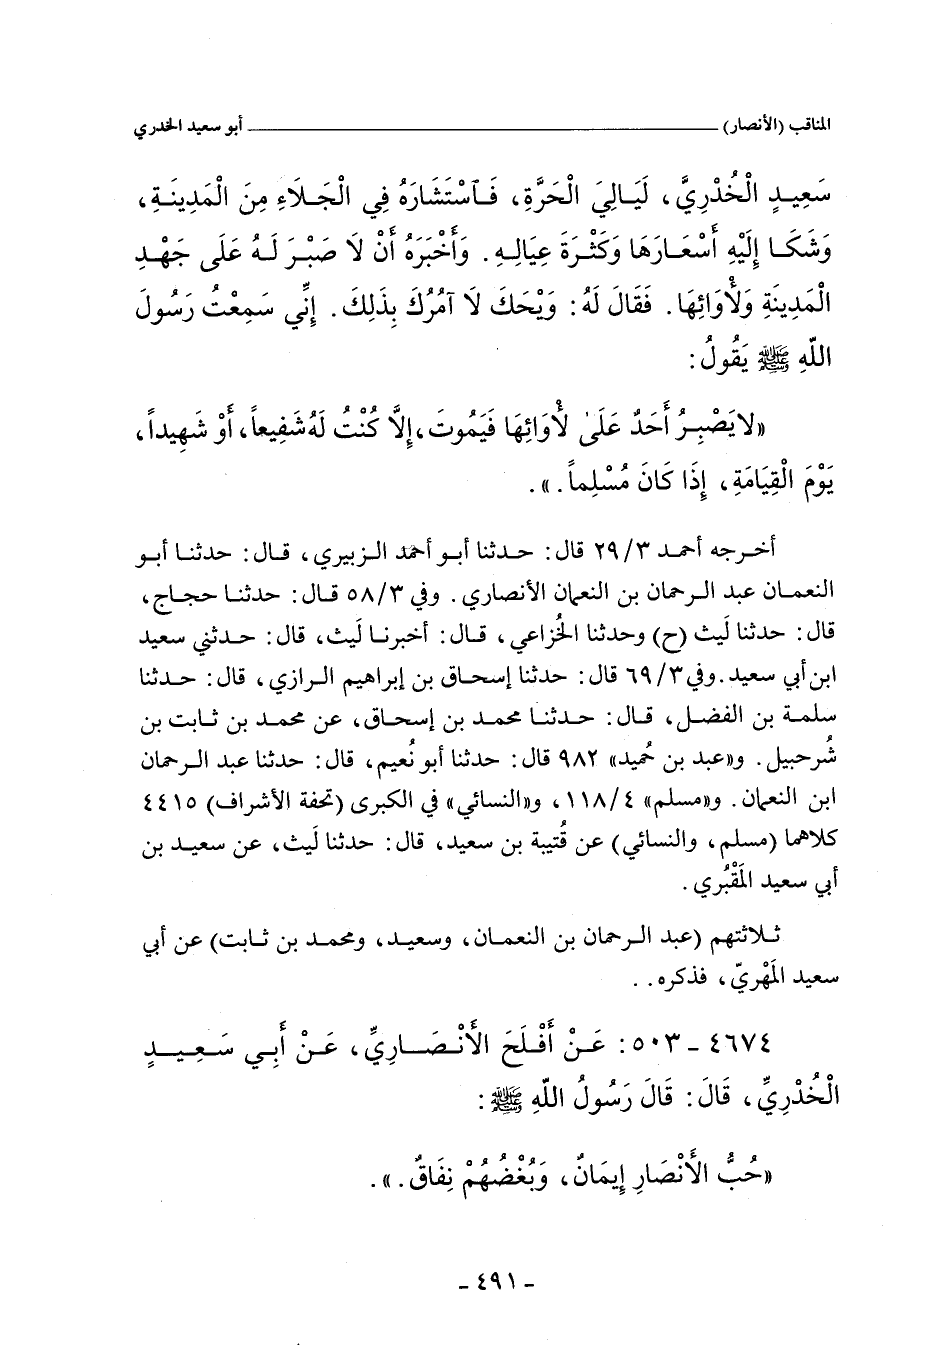 المناقب (الأنصار) ــــــــــــــــــــــــــــــــــــــــ أبو سعيد الخدري
سَعِيدٍ الْخُدْرِيَّ، لَيَالِيَ الْحَرَّةِ، فَآسْتَشَارَهُ فِي الْجَلَاءِ مِنَ الْمَدِينَةِ،
وَشَكَا إِلَيْهِ أَسْعَارَهَا وَكَثْرَةَ عِيَالِهِ. وَأَخْبَرَهُ أَنْ لَا صَبْرَ لَهُ عَلَى جَهْدِ
الْمَدِينَةِ وَلَأْوَائِهَا. فَقَالَ لَهُ: وَيْحَكَ لَا آمُرُكَ بِذَلِكَ. إِنِّي سَمِعْتُ رَسُولَ
اللّهِ ﷺ يَقُولُ:
«لَا يَصْبِرُ أَحَدٌ عَلَىٰ لَأْوَائِهَا فَيَمُوتَ، إِلَّا كُنْتُ لَهُ شَفِيعاً، أَوْ شَهِيداً،
يَوْمَ الْقِيَامَةِ، إِذَا كَانَ مُسْلِماً.».
أخرجه أحمد ٢٩/٣ قال: حدثنا أبو أحمد الزبيري، قال: حدثنا أبو
النعمان عبد الرحمان بن النعمان الأنصاري. وفي ٥٨/٣ قال: حدثنا حجاج،
قال: حدثنا لَيث (ح) وحدثنا الخُزاعي، قال: أخبرنا لَيث، قال: حدثني سعيد
ابن أبي سعيد. وفي ٦٩/٣ قال: حدثنا إسحاق بن إبراهيم الرازي، قال: حدثنا
سلمة بن الفضل، قال: حدثنا محمد بن إسحاق، عن محمد بن ثابت بن
شُرحبيل. و«عبد بن حُميد» ٩٨٢ قال: حدثنا أبو نُعيم، قال: حدثنا عبد الرحمان
ابن النعمان. و«مسلم» ١١٨/٤، و«النسائي» في الكبرى (تحفة الأشراف) ٤٤١٥
كلاهما (مسلم، والنسائي) عن قُتيبة بن سعيد، قال: حدثنا لَيث، عن سعيد بن
أبي سعيد المَقْبُري.
ثلاثتهم (عبد الرحمان بن النعمان، وسعيد، ومحمد بن ثابت) عن أبي
سعيد المَهْريّ، فذكره. .
٤٦٧٤ - ٥٠٣: عَنْ أَفْلَحَ الأَنْصَارِيِّ، عَنْ أَبِي سَعِيدٍ
الْخُدْرِيِّ، قَالَ: قَالَ رَسُولُ اللّهِ ﷺ:
«حُبُّ الأَنْصَارِ إِيمَانٌ، وَبُغْضُهُمْ نِفَاقٌ.».
- ٤٩١ -